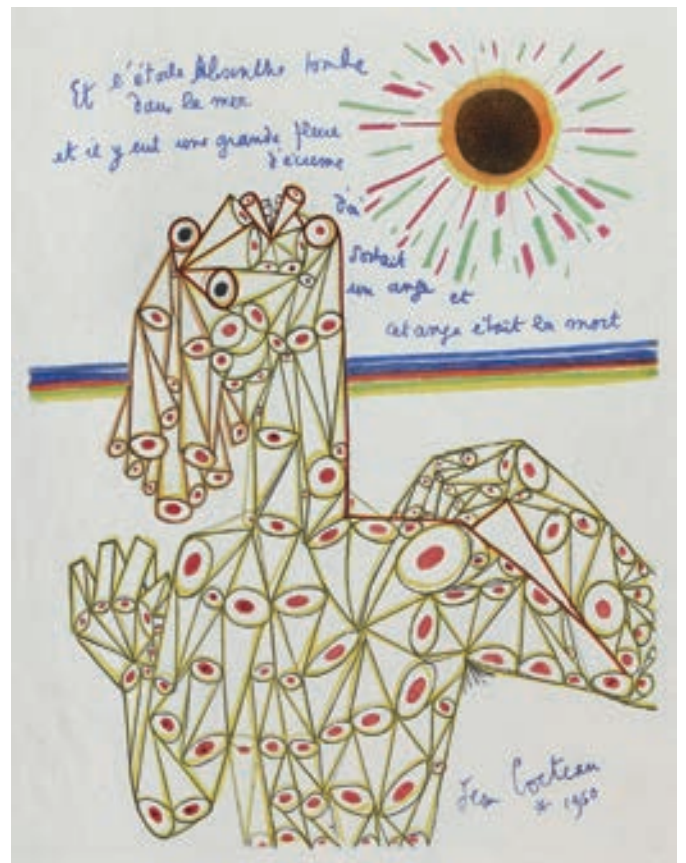 Et l'étoile Absinthe tombe
dans la mer
et il y eut une grande fleur
d'écume
d'où
sortait
un ange et
cet ange était la mort
Jean Cocteau
* 1960